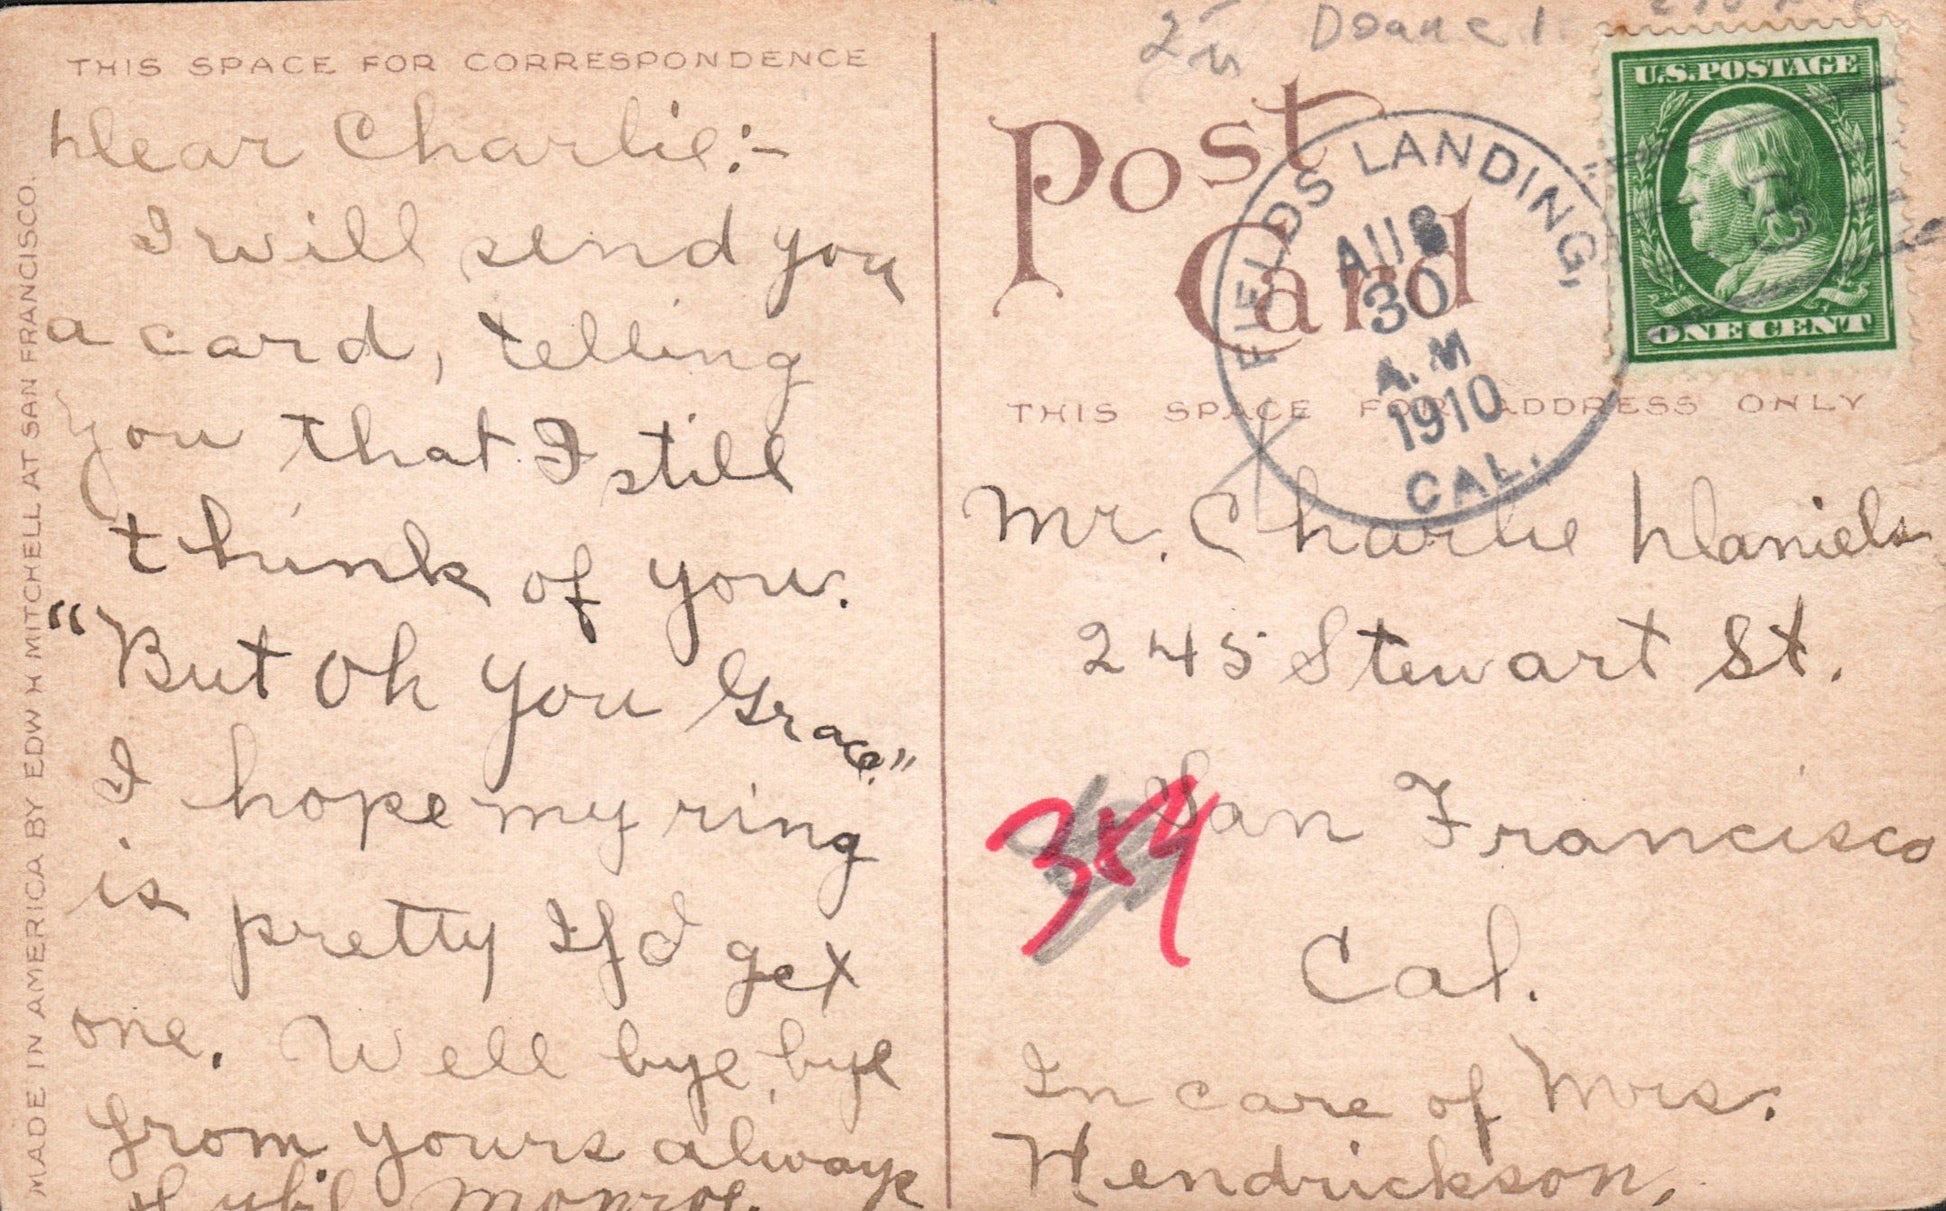 THIS SPACE FOR CORRESPONDENCE
Dear Charlie:-
I will send you
a card, telling
you that I still
think of you.
"But Oh you Grace."
I hope my ring
is pretty If I get
one. Well bye, bye
from yours always
Sybil Monroe.
MADE IN AMERICA BY EDW H MITCHELL AT SAN FRANCISCO.
Doane 1
Post
Card
FIELDS LANDING,
AUG
30
A.M
1910
CAL.
U.S. POSTAGE
ONE CENT
THIS SPACE FOR ADDRESS ONLY
Mr. Charlie Daniels
245 Stewart St.
San Francisco
Cal.
In care of Mrs.
Hendrickson,